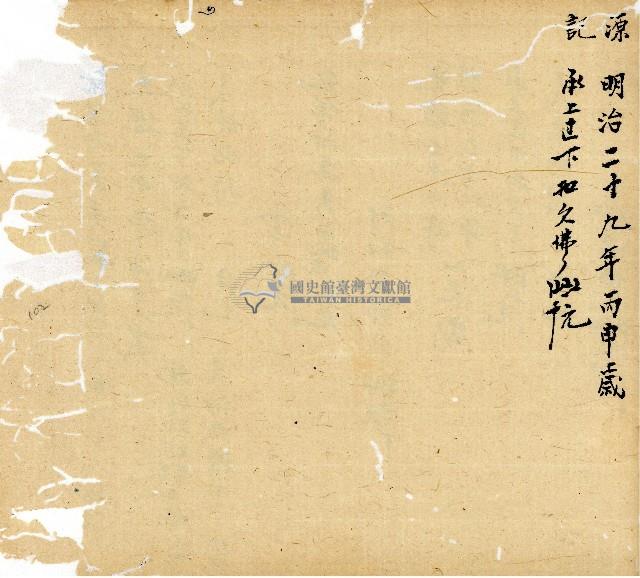 源 明治二十九年丙申歲
記 承上過下和欠佛
國史館臺灣文獻館
TAIWAN HISTORICA
102